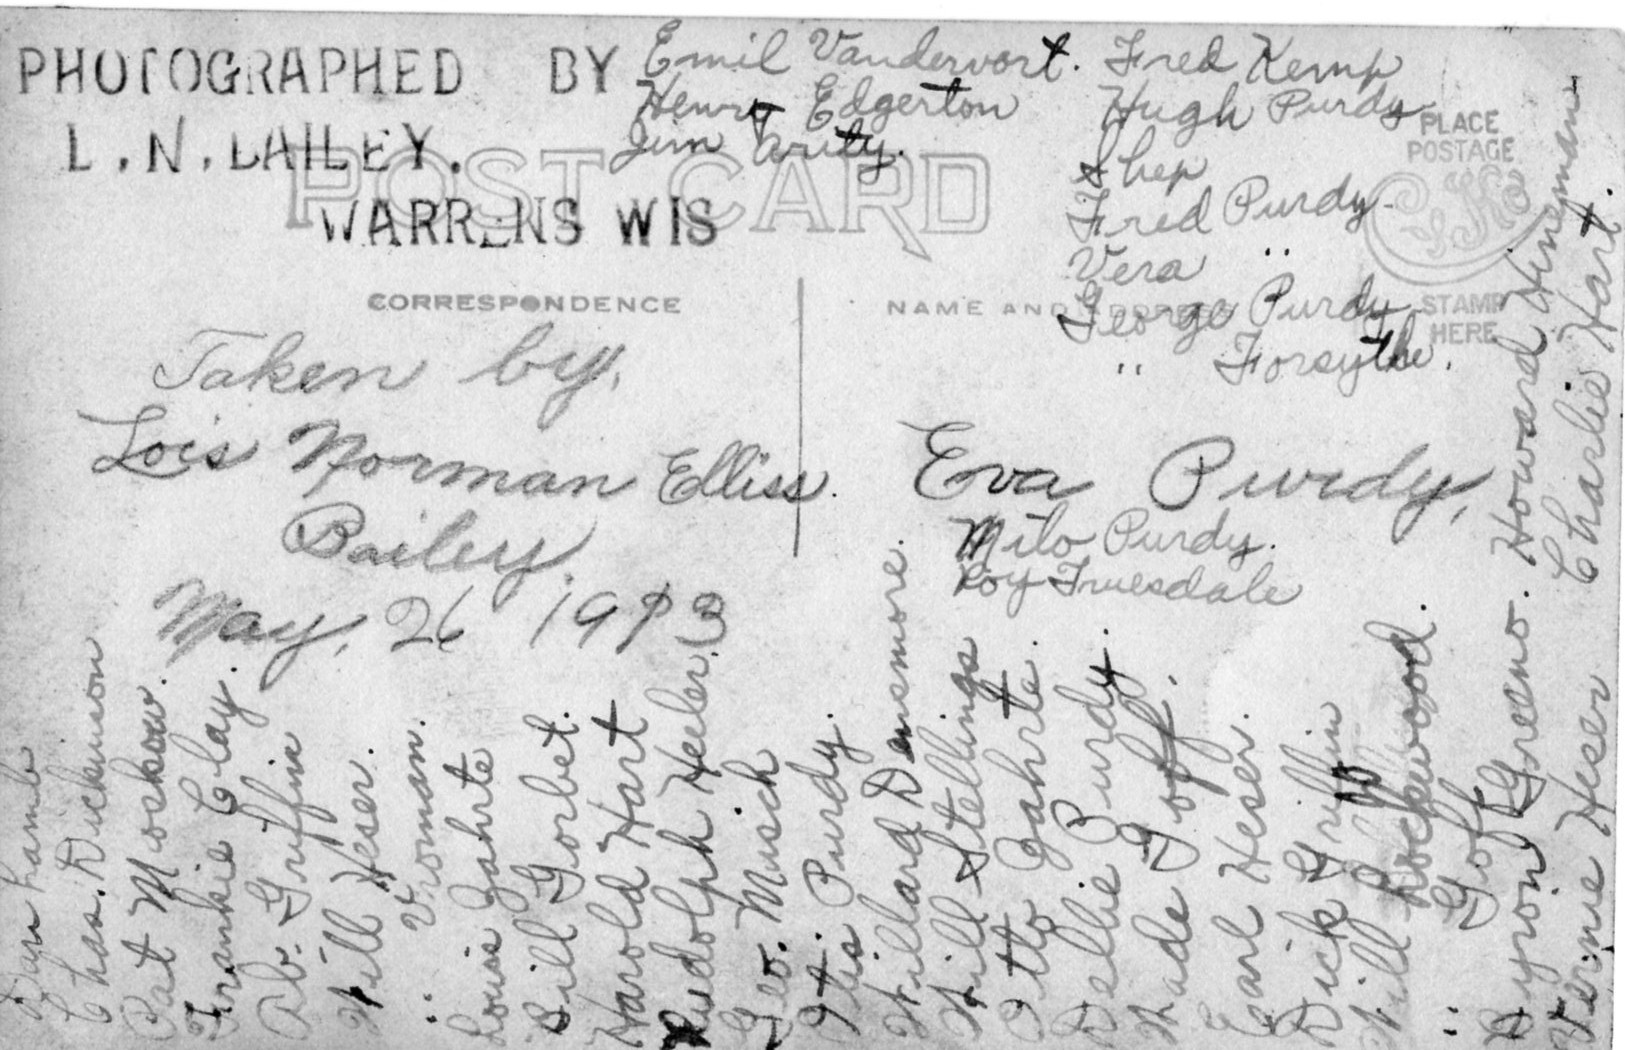 PHOTOGRAPHED BY
L.N.BAILEY.
WARRENS WIS
POST CARD
CORRESPONDENCE
NAME AND ADDRESS
PLACE
POSTAGE
STAMP
HERE
Emil Vandervort. Fred Kemp
Henry Edgerton Hugh Purdy
Jim Arity.
Shep
Fred Purdy-
Vera "
George Purdy
" Forsythe.
Taken by,
Lois Norman Elliss.
Bailey.
May, 26 1913
Eva Purdy,
Milo Purdy.
Roy Truesdale
Dan Lamb
Chas. Dickinson
Pat Moskow.
Frankie Clay.
Ab. Griffin
Will Heser.
" Vroman.
Louis Jahrte
Bill Gorbet.
Harold Hart
Ruedolph Heeler.
Geo. Musch
Otis Purdy.
Willard Densmore.
Will Stellings
Otto Jahrte.
Dellie Purdy.
Wade Goff.
Earl Heser.
Dick Griffin
Will Rockwood.
" Goff
Byron Greeno. Howard Hineman
Vernie Heser Charlie Hart.